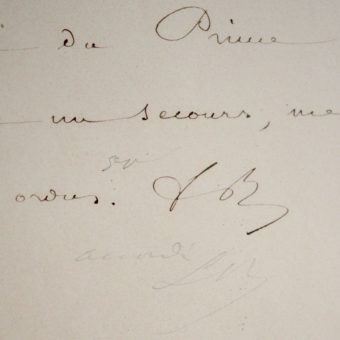 du Prince
un secours, me
ordres. LB
accordé
LB